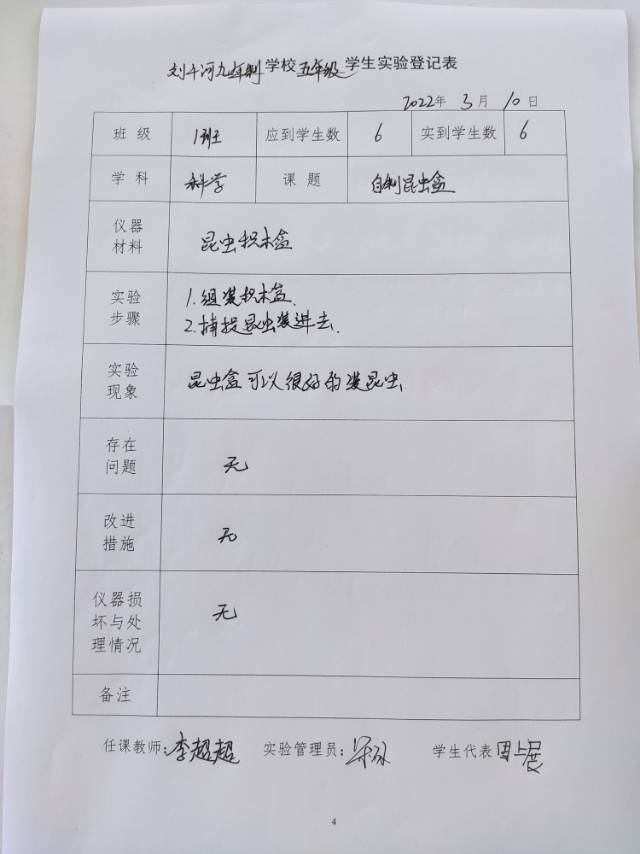 刘千河九年制学校五年级学生实验登记表
2022年3月10日
班级 1班 应到学生数 6 实到学生数 6
学科 科学 课题 自制昆虫盒
仪器
材料
昆虫积木盒
实验
步骤
1.组装积木盒.
2.捕捉昆虫装进去.
实验
现象
昆虫盒可以很好的装昆虫
存在
问题
无
改进
措施
无
仪器损
坏与处
理情况
无
备注
任课教师:李超超 实验管理员: 学生代表
4